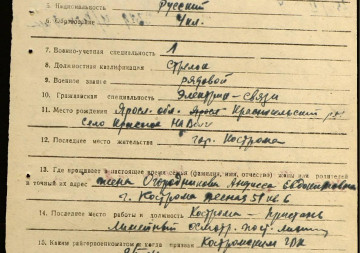 5. Национальность Русский
6. Образование 4 кл.
7. Военно-учетная специальность 1
8. Должностная квалификация стрелок
9. Военное звание рядовой
10. Гражданская специальность Электрик-связи
11. Место рождения Яросл. обл. Красносельский р-н
село Красное
12. Последнее место жительства гор. Кострома
13. Где проживает в настоящее время семья (фамилия, имя, отчество) жены или родителей
и точный их адрес жена Огородникова Евдокимовна
г. Кострома Лесная
14. Последнее место работы и должность Кострома - Пристань
линейный
15. Каким райгорвоенкоматом и когда призван Костромским ГВК